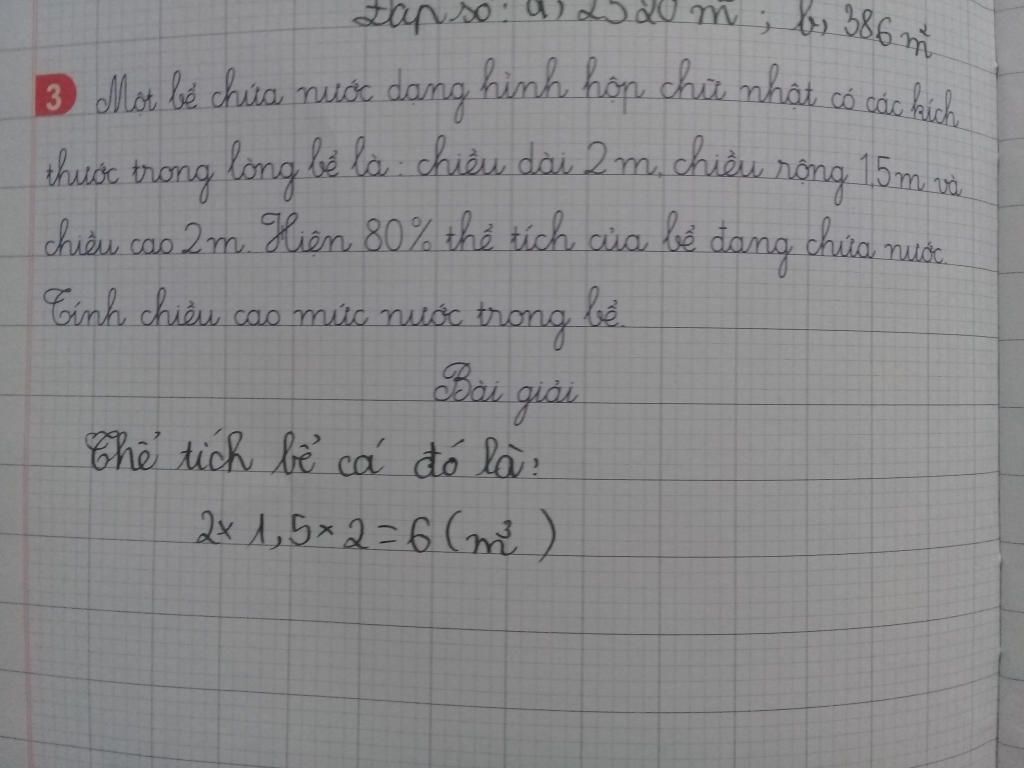 Đáp số: a, 2520 m² ; b, 386 m²
3 Một bể chứa nước dạng hình hộp chữ nhật có các kích
thước trong lòng bể là: chiều dài 2 m, chiều rộng 1,5 m và
chiều cao 2 m. Hiện 80% thể tích của bể đang chứa nước.
Tính chiều cao mức nước trong bể.
Bài giải
Thể tích bể cá đó là:
2 × 1,5 × 2 = 6 (m³)